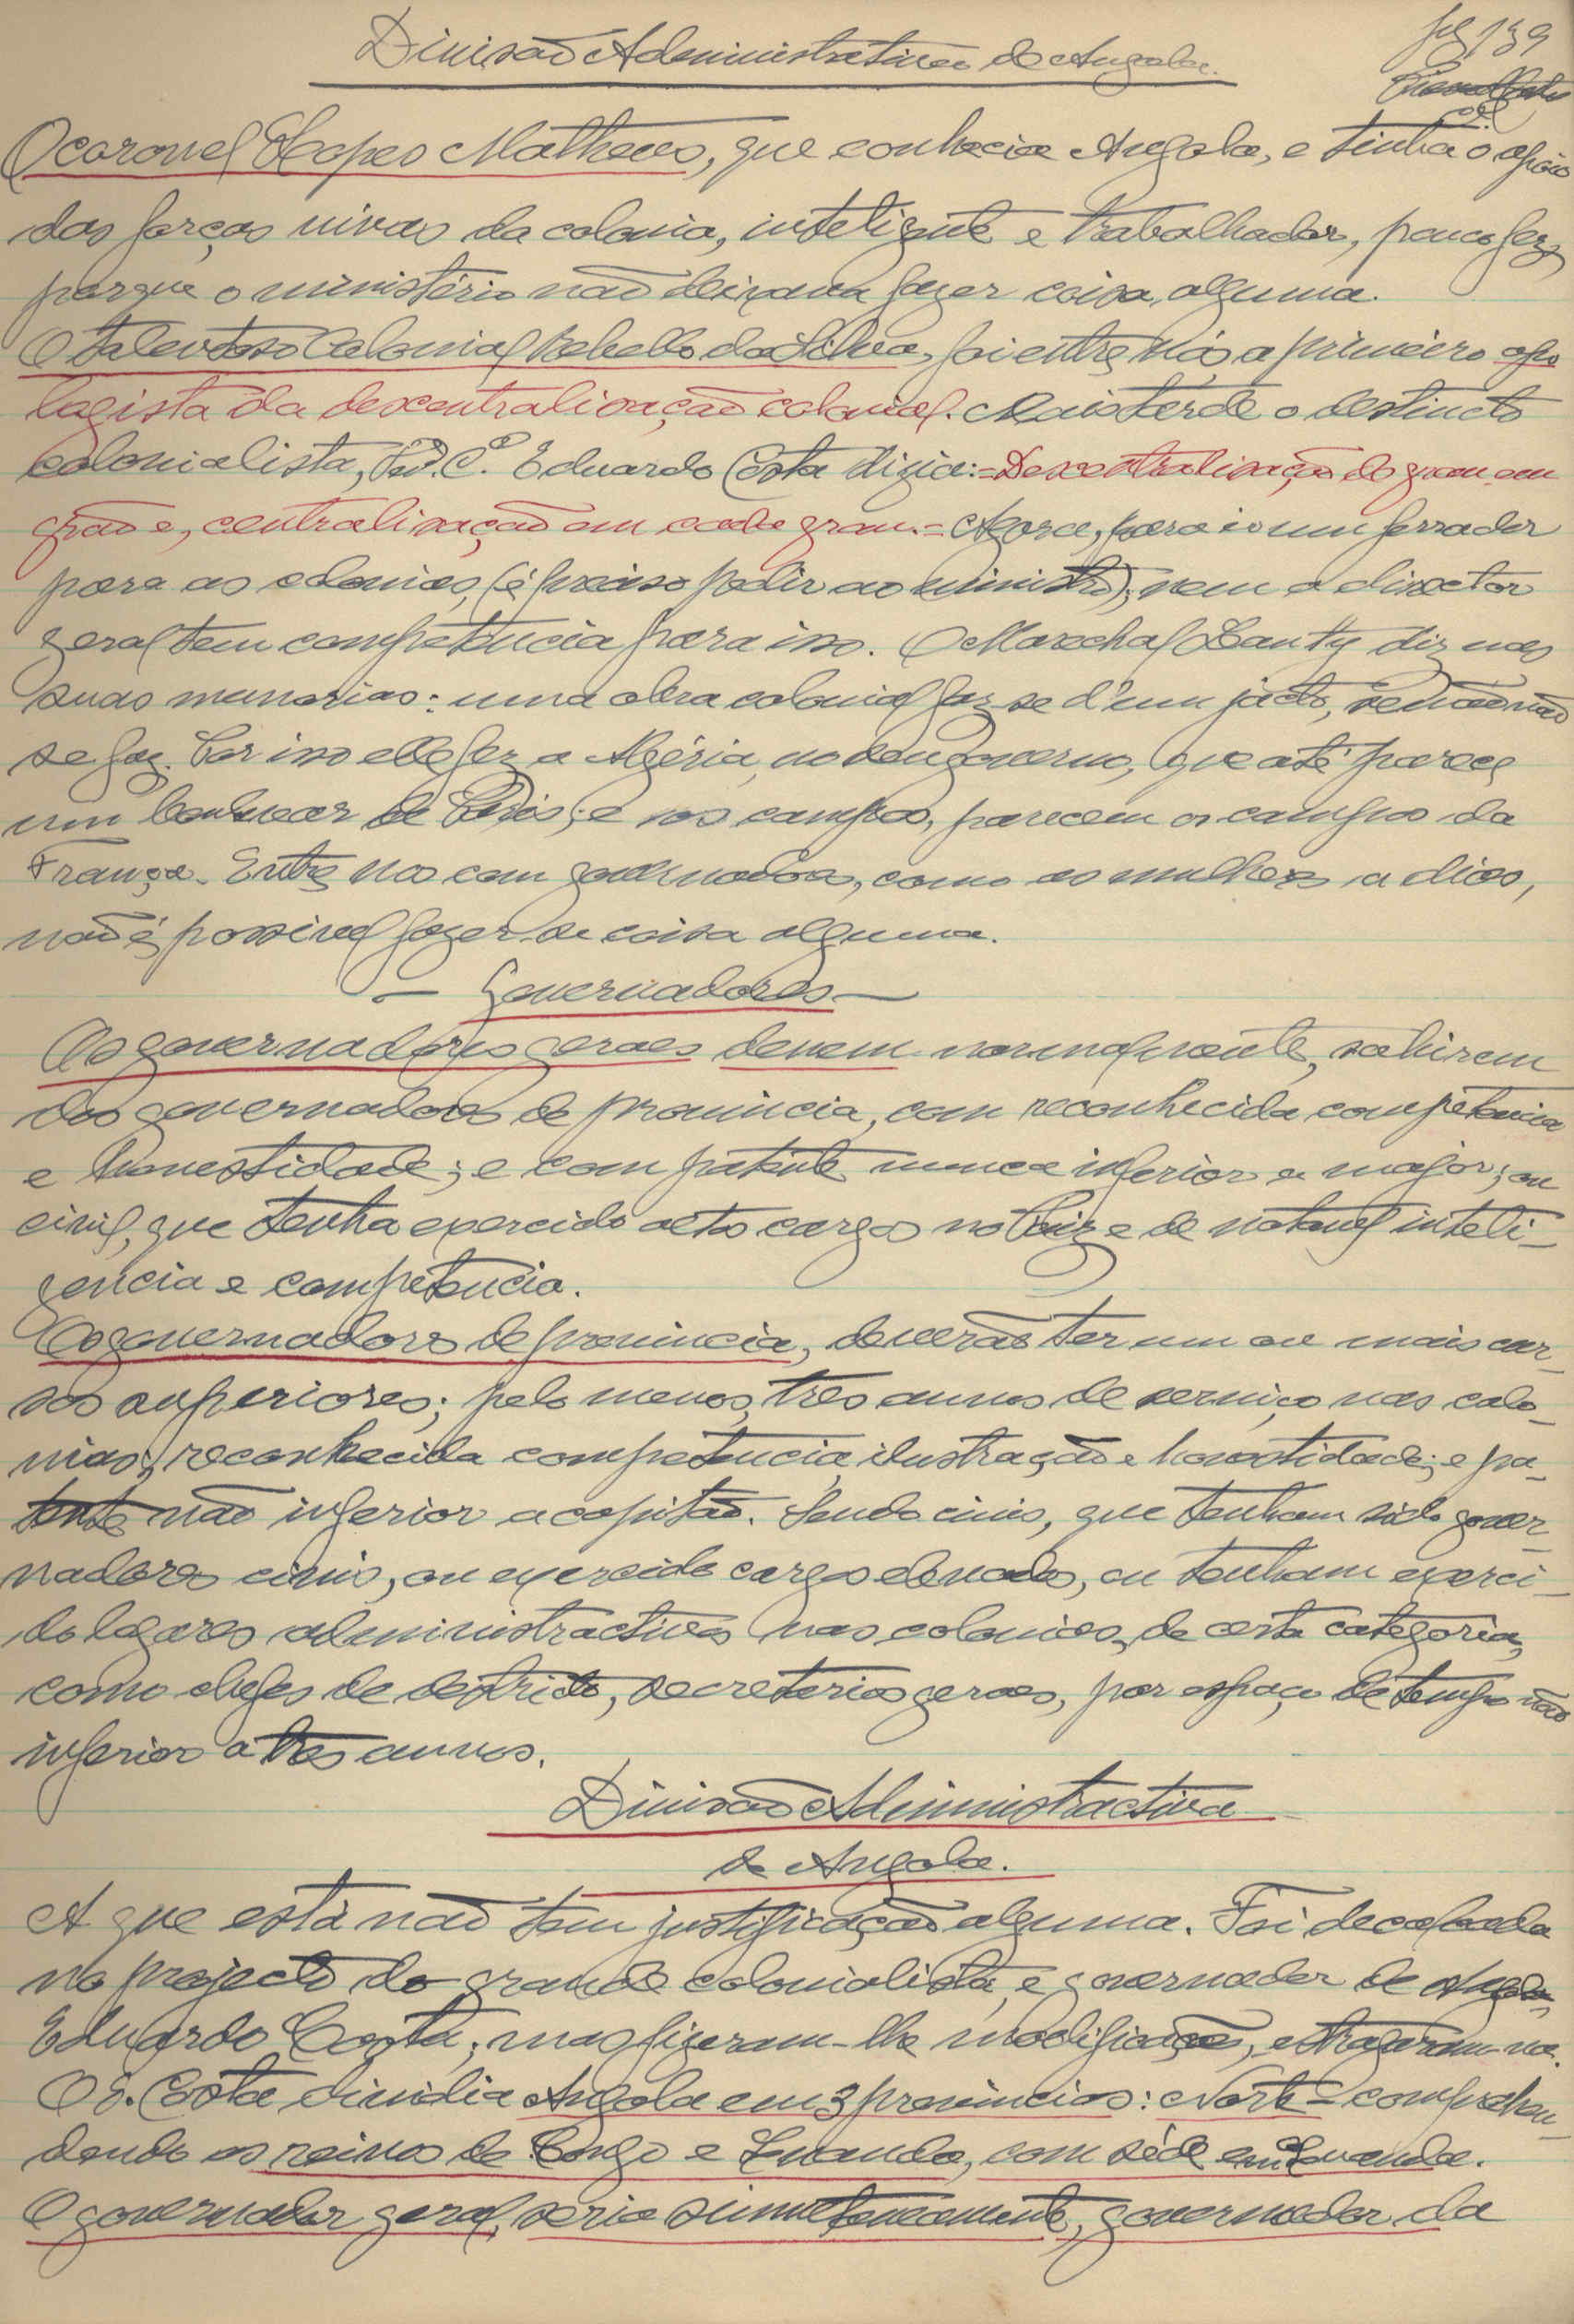 Divisão Administrativa de Angola.
fls 139
O coronel Lopes Matheus, que conhecia Angola, e tinha o apoio
das forças vivas da colonia, inteligente e trabalhador, pouco fez,
porque o ministério não deixava fazer coisa alguma.
O talentoso Colonial Rebello da Silva, foi entre nós o primeiro apo
logista da descentralisação colonial. Mais tarde o destincto
colonialista, Eduardo Costa dizia:=Descentralisação de grau em
grao e, centralisação em cada grau.= Agora, para ir um ferrador
para as colonias, (é preciso pedir ao ministro); nem o director
geral tem competencia para isso. O Marechal Liauty diz nas
suas memorias: uma obra colonial faz-se d'um jacto, senão não
se faz. Por isso elle fez a Algéria, no seu governo, que até parece
um boulevar de Paris; e nos campos, parecem os campos da
França. Entre nós com governadores, como as mulheres a dias,
não é possivel fazer-se coisa alguma.
— Governadores —
Os governadores geraes devem normalmente, sahirem
dos governadores de provincia, com reconhecida competencia
e honestidade; e com patente nunca inferior a major; ou
civil, que tenha exercido altos cargos no Paiz e de notavel inteli-
gencia e competencia.
Os governadores de provincia, deverão ter um ou mais cur-
sos superiores; pelo menos, tres annos de serviço nas colo-
nias; reconhecida competencia, ilustração e honestidade; e pa-
tente não inferior a capitão. Sendo civis, que tenham sido gover-
nadores civis, ou exercido cargos elevados, ou tenham exerci-
do logares administractivos nas colonias, de certa categoria,
como chefes de destricto, secretarios geraes, por espaço de tempo não
inferior a tres annos.
Divisão Administractiva
de Angola.
A que está não tem justificação alguma. Foi decalcada
no projecto do grande colonialista, e governador de Angola,
Eduardo Costa; mas fizeram-lhe modificações, e estragaram-na.
O E. Costa dividia Angola em 3 provincias: Norte = comprehen-
dendo os reinos do Congo e Luanda, com séde em Luanda.
O governador geral, seria simultaneamente, governador da